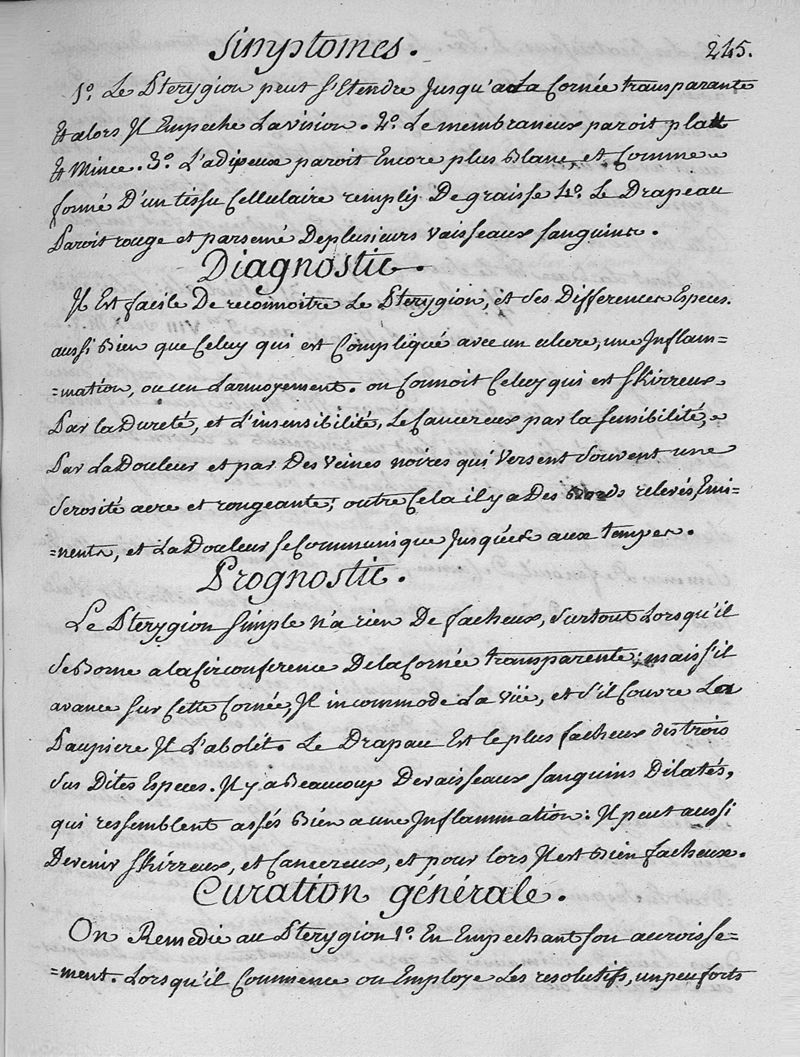 Simptomes.
245.
1º. Le Pterygion peut s'Etendre Jusqu'a La Cornée transparante
Et alors Il Empeche La vision. 2º. Le membraneux paroit platt
Et Mince. 3º. L'adipeux paroit Encore plus Blanc, et Comme
formé D'un tissu Cellulaire remplis De graisse 4º. Le Drapeau
Paroit rouge et parsemé De plusieurs vaisseaux sanguins.
Diagnostic.
Il Est facile De reconnoitre Le Pterygion, et Ses Differentes Especes.
aussi Bien que Celuy qui est Compliqué avec un ulcere, une Inflam=
=mation, ou un Larmoyement. on Connoit Celuy qui est Skirreux
Par la Dureté, et L'insensibilité, Le Cancereux par la sensibilité,
Par La Douleur et par Des veines noires qui versent Souvent une
Serosité acre et rongeante; outre Cela il y a Des Bords relevés Emi=
=nents, et La Douleur se Communique Jusques aux tempes.
Prognostic.
Le Pterygion Simple n'a rien De facheux, Surtout Lorsqu'il
Se Borne a la Circonference De la Cornée transparente; mais s'il
avance Sur Cette Cornée, Il incommode La vüe, et S'il Couvre La
Paupiere Il L'abolit. Le Drapau Est le plus facheux des trois
Sus Dites Especes. Il y a Beaucoup De vaisseaux sanguins Dilatés,
qui ressemblent assés Bien a une Inflammation: Il peut aussi
Devenir Skirreux, et Cancereux, et pour lors Il est Bien facheux.
Curation générale.
On Remedie au Pterygion 1º. En Empechant son accroisse=
=ment. Lorsqu'il Commence on Employe Les resolutifs, un peu forts